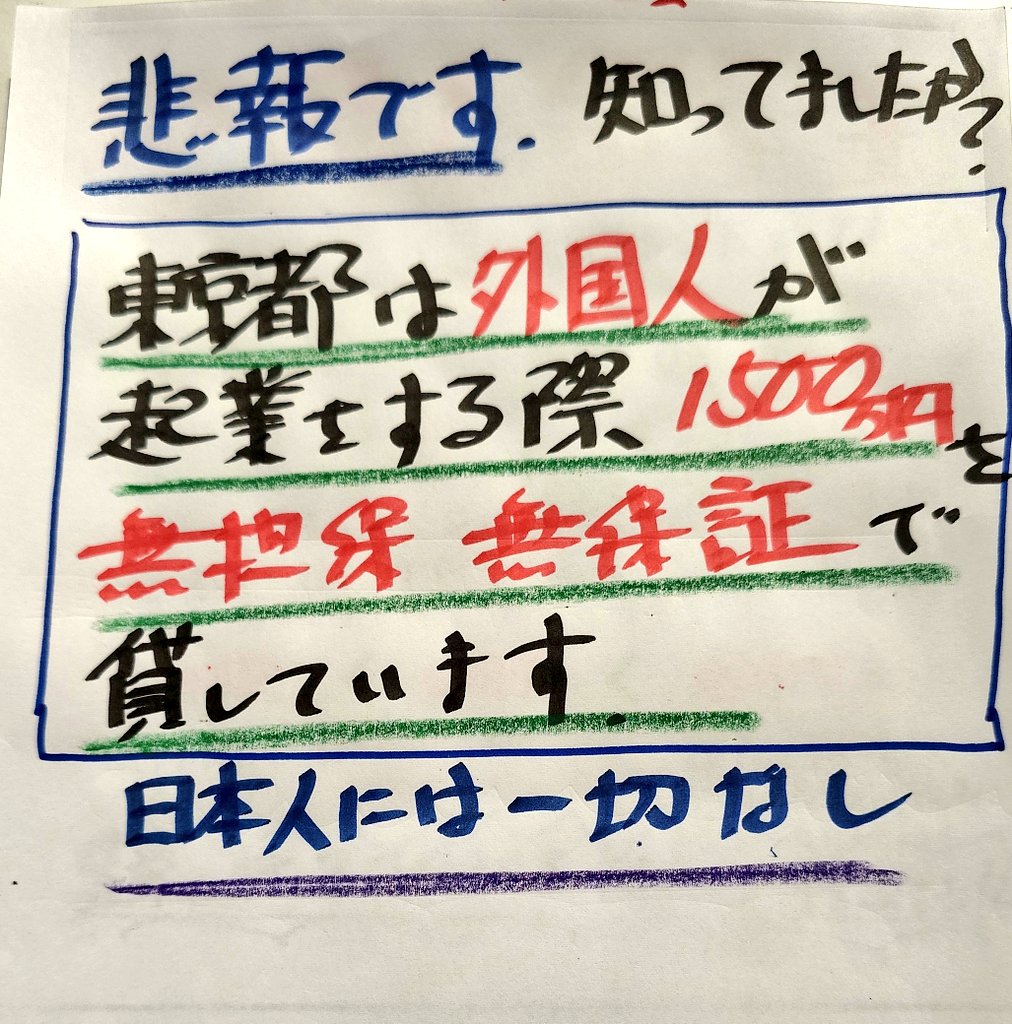 悲報です. 知ってましたか?
東京都は外国人が
起業をする際 1500万円を
無担保 無保証で
貸しています.
日本人には一切なし